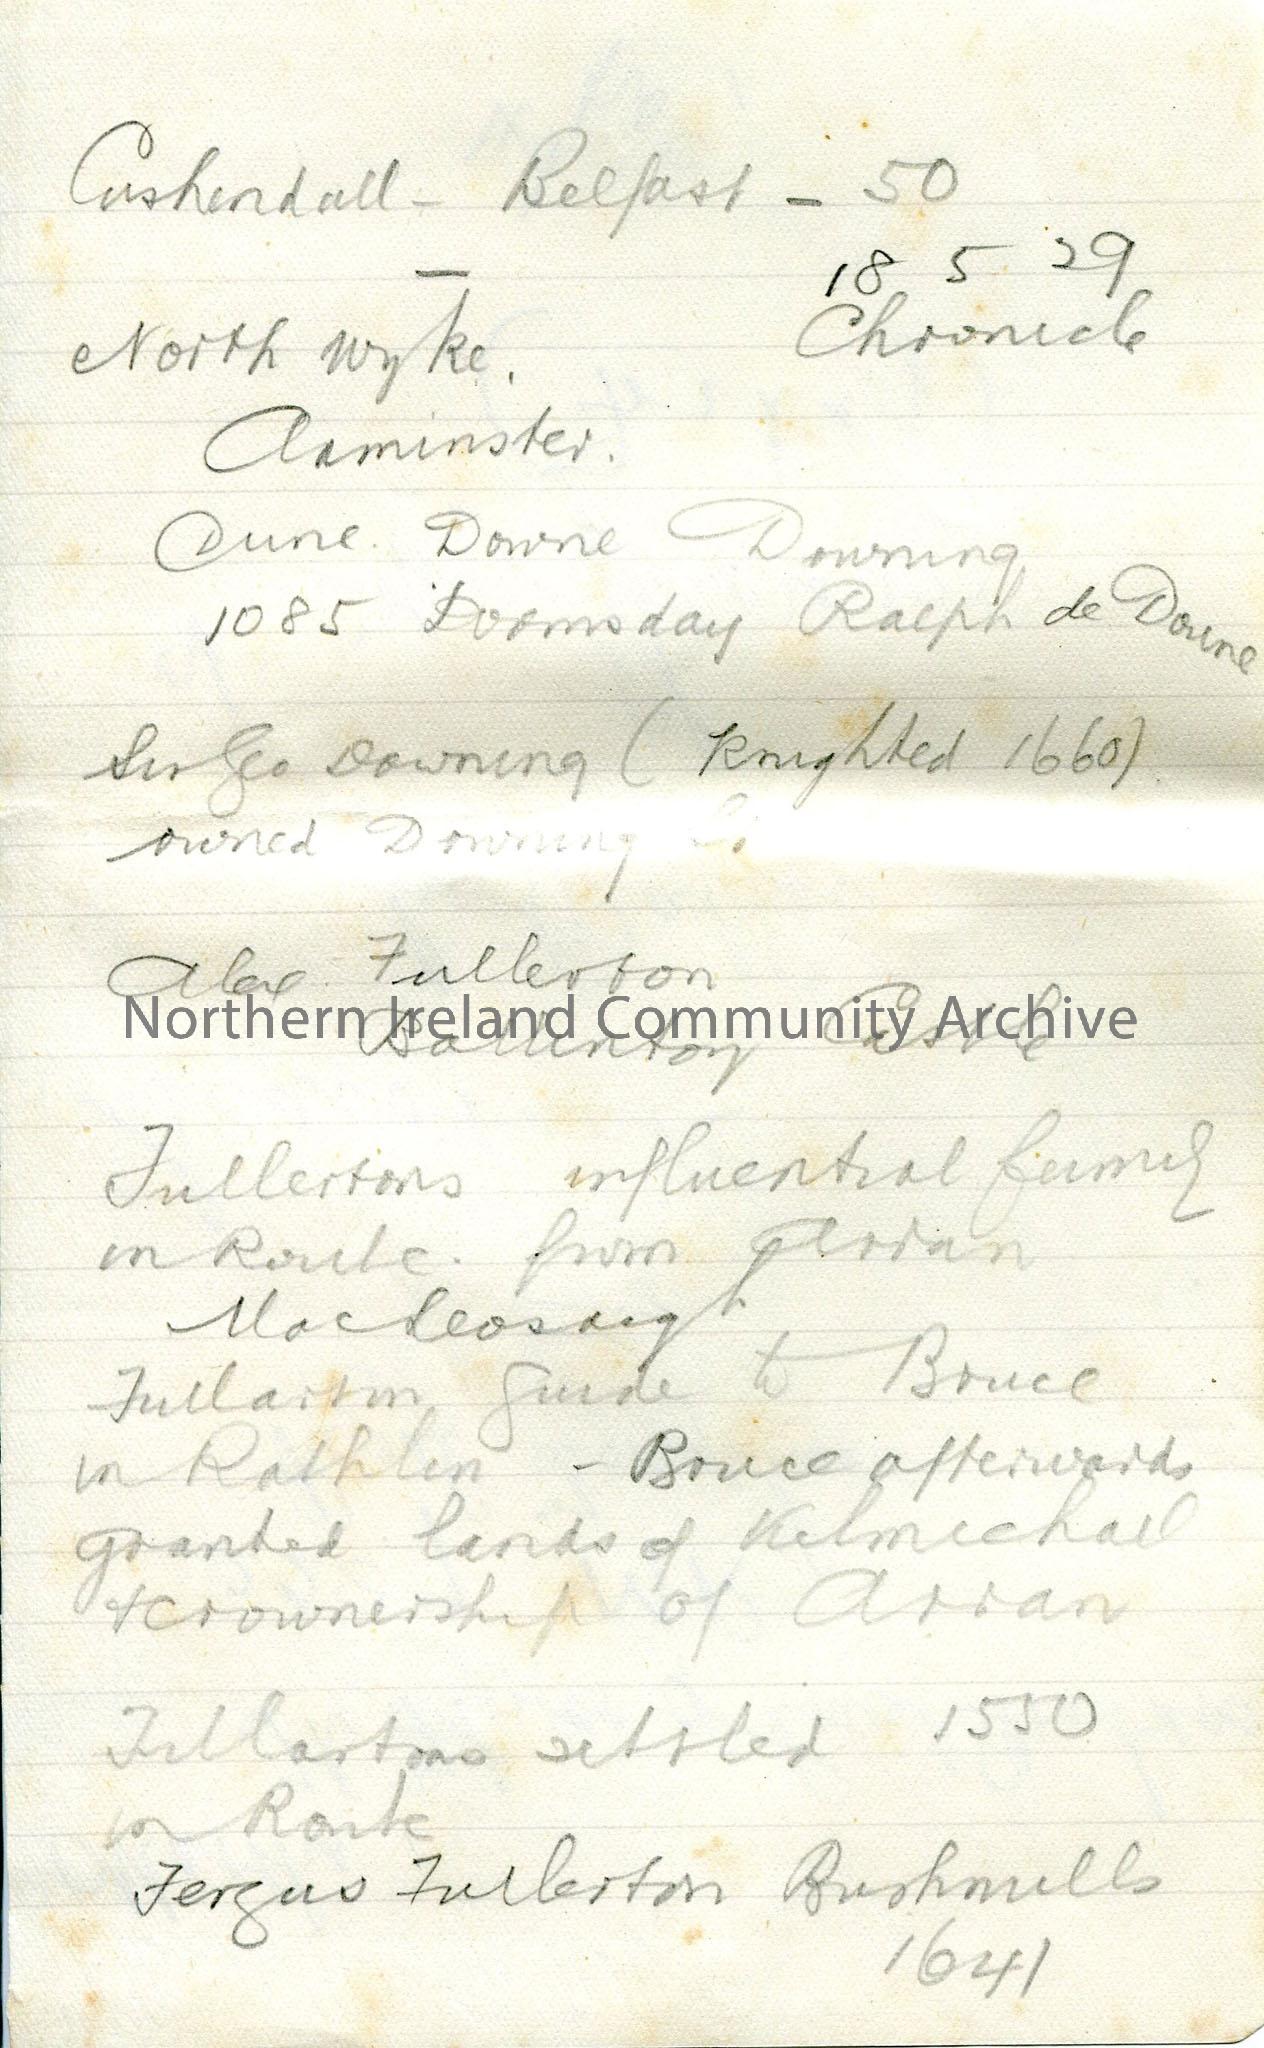 Cushendall - Belfast - 50
18 5 29
Chronicle
North Wyke.
Axminster.
Dune. Downe Downing
1085 Doomsday Ralph de Downe
Sir Geo Downing (Knighted 1660)
owned Downing St
Alex Fullerton
Ballintoy Castle
Northern Ireland Community Archive
Fullertons influential family
in Route. from Arran
Fullarton guide to Bruce
in Rathlin - Bruce afterwards
granted lands of Kilmichael
& crownership of Arran
Fullartons settled 1550
in Route
Fergus Fullerton Bushmills
1641